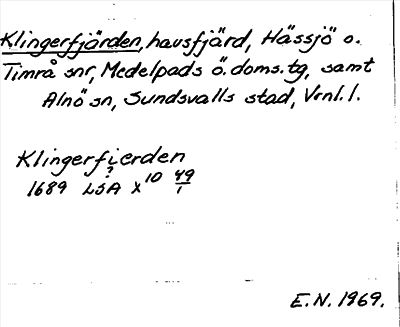 Klingerfjärden, havsfjärd, Hässjö o.
Timrå snr, Medelpads ö. doms. tg, samt
Alnö sn, Sundsvalls stad, Vrnl. l.
Klingerfjerden
?
1689 LSA X 10 49/1
E.N. 1969.